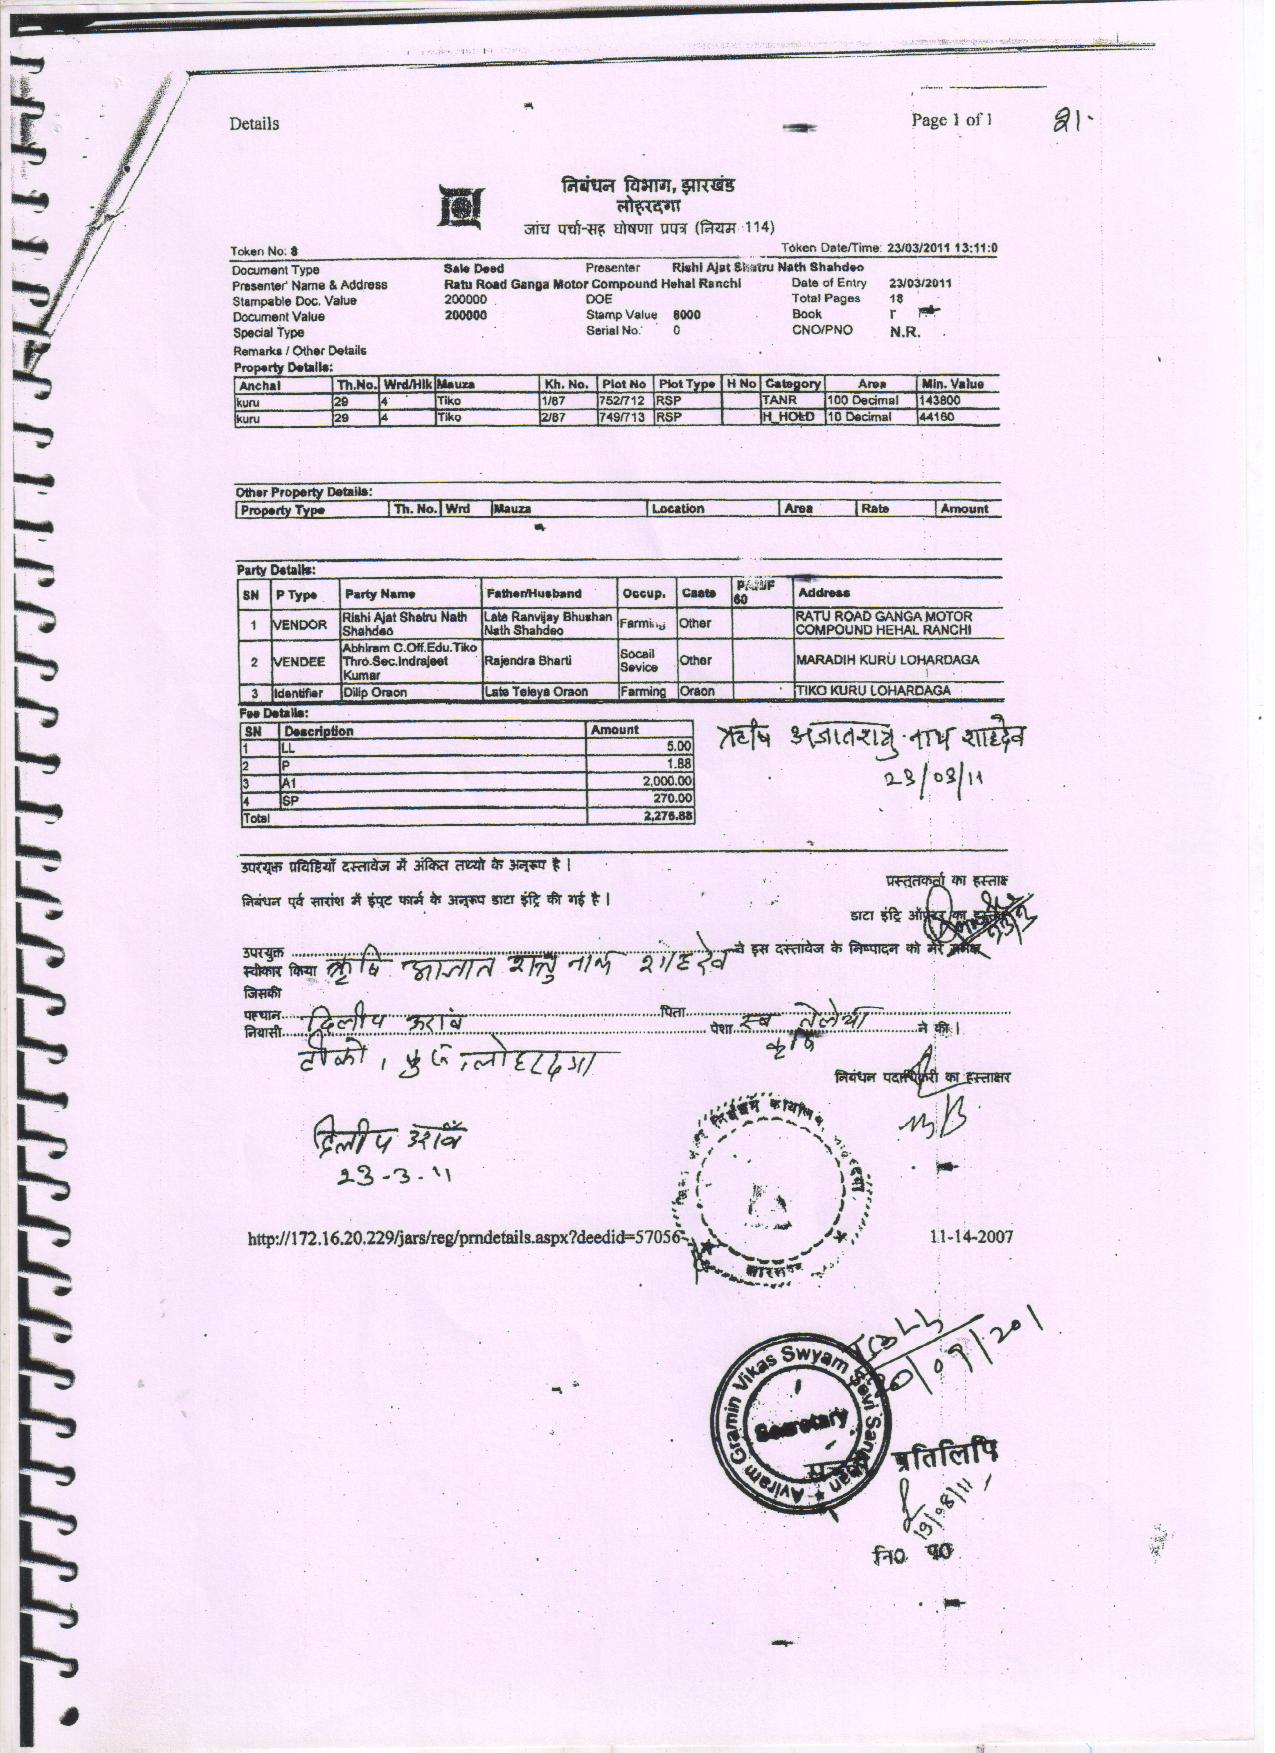 Details
Page 1 of 1
21.
निबंधन विभाग, झारखंड
लोहरदगा
जांच पर्चा-सह घोषणा प्रपत्र (नियम 114)
Token No: 8 Token Date/Time: 23/03/2011 13:11:0
Document Type Sale Deed Presenter Rishi Ajat Shatru Nath Shahdeo
Presenter' Name & Address Ratu Road Ganga Motor Compound Hehal Ranchi Date of Entry 23/03/2011
Stampable Doc. Value 200000 DOE Total Pages 18
Document Value 200000 Stamp Value 8000 Book I
Special Type Serial No. 0 CNO/PNO N.R.
Remarks / Other Details
Property Details:
Anchal Th.No. Wrd/Hlk Mauza Kh. No. Plot No Plot Type H No Category Area Min. Value
kuru 29 4 Tiko 1/87 752/712 RSP TANR 100 Decimal 143800
kuru 29 4 Tiko 2/87 749/713 RSP H_HOLD 10 Decimal 44160
Other Property Details:
Property Type Th. No. Wrd Mauza Location Area Rate Amount
Party Details:
SN P Type Party Name Father/Husband Occup. Caste 60 Address
1 VENDOR Rishi Ajat Shatru Nath Shahdeo Late Ranvijay Bhushan Nath Shahdeo Farming Other RATU ROAD GANGA MOTOR COMPOUND HEHAL RANCHI
2 VENDEE Abhiram C.Off.Edu.Tiko Thro.Sec.Indrajeet Kumar Rajendra Bharti Socail Sevice Other MARADIH KURU LOHARDAGA
3 Identifier Dilip Oraon Late Teleya Oraon Farming Oraon TIKO KURU LOHARDAGA
Fee Details:
SN Description Amount
1 LL 5.00
2 P 1.88
3 A1 2,000.00
4 SP 270.00
Total 2,276.88
ऋषि अजातशत्रु नाथ शाहदेव
23/03/11
उपरयुक्त प्रविष्टियाँ दस्तावेज में अंकित तथ्यो के अनुरूप है |
प्रस्तुतकर्ता का हस्ताक्ष
निबंधन पूर्व सारांश में इंपूट फार्म के अनुरूप डाटा इंट्रि की गई है |
डाटा इंट्रि ऑपरेटर का
उपरयुक्त ने इस दस्तावेज के निष्पादन को मेरे समक्ष
स्वीकार किया ऋषि अजात शत्रु नाथ शाहदेव
जिसकी
पहचान दिलीप उरांव पिता स्व तेलेया
निवासी टीको, कुरू, लोहरदगा पेशा कृषि ने की |
निबंधन पदाधिकरी का हस्ताक्षर
दिलीप उराँव
23-3-11
झारखण्ड
http://172.16.20.229/jars/reg/prndetails.aspx?deedid=57056 11-14-2007
Aviram Gramin Vikas Swyam Sevi Sansthan
Secretary
प्रतिलिपि
19/08/11
नि0